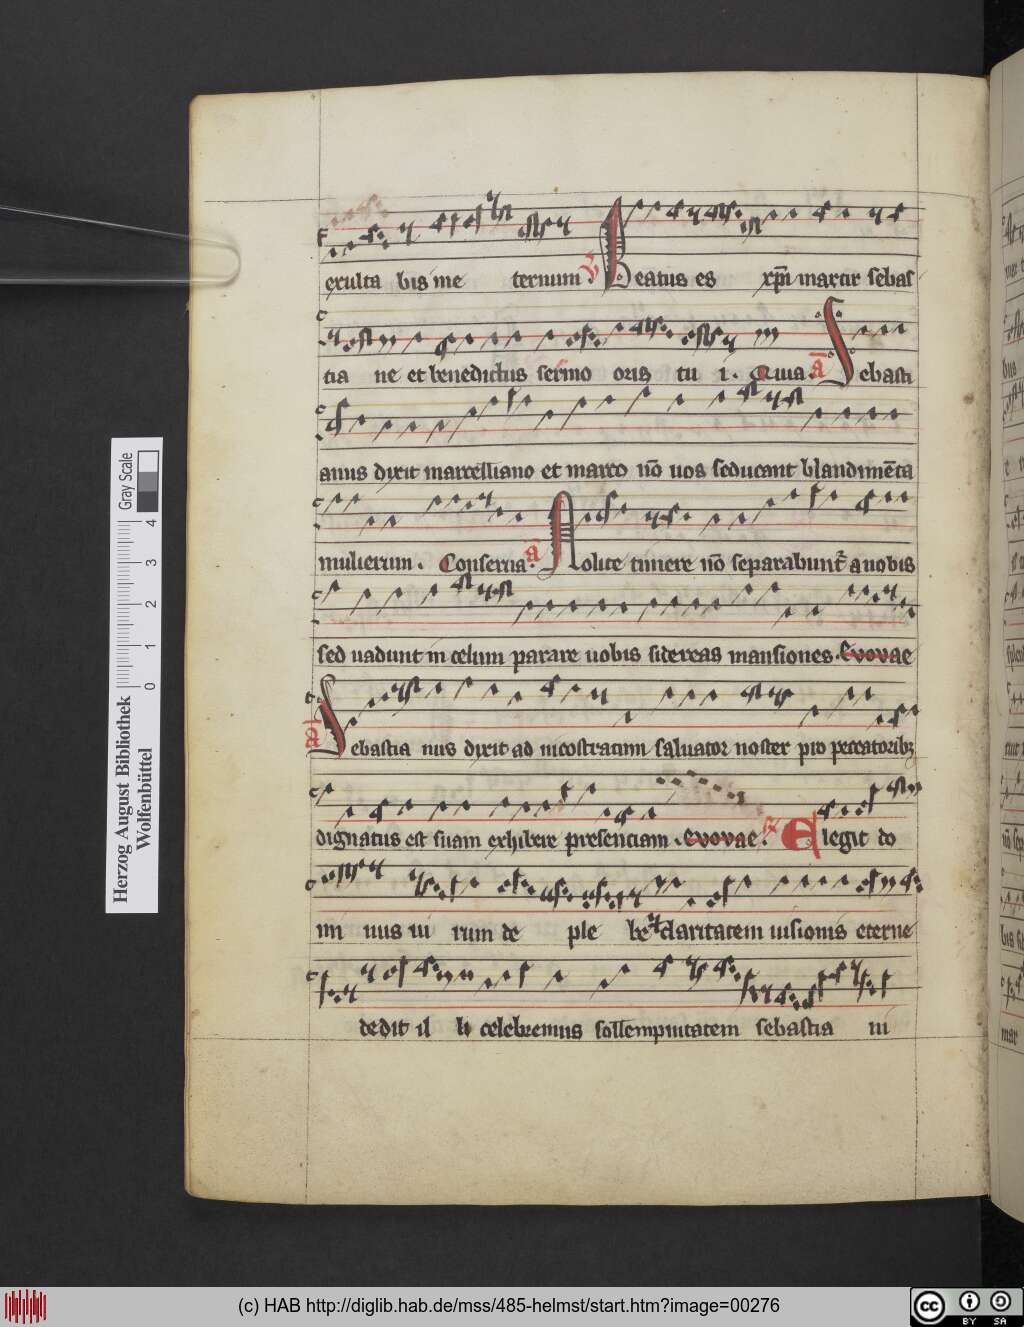 exulta bis me ternum . V Beatus es xpm martir sebas
tia ne et benedictus sermo oris tu i . Quia . a Sebasti
anus dixit marcelliano et marco nō uos seducant blandimēta
mulierum . Conserua . a Nolite timere nō separabunt a uobis
sed uadunt in celum parare uobis sidereas mansiones . Evovae
a Sebastia nus dixit ad nicostratum saluator noster pro peccatoribꝫ
dignatus est suam exhibere presenciam . Evovae . R Elegit do
mi nus ui rum de ple be claritatem uisionis eterne
dedit il li celebremus sollempnitatem sebastia ni
Herzog August Bibliothek
Wolfenbüttel
0 1 2 3 4
Gray Scale
(c) HAB http://diglib.hab.de/mss/485-helmst/start.htm?image=00276
cc BY SA